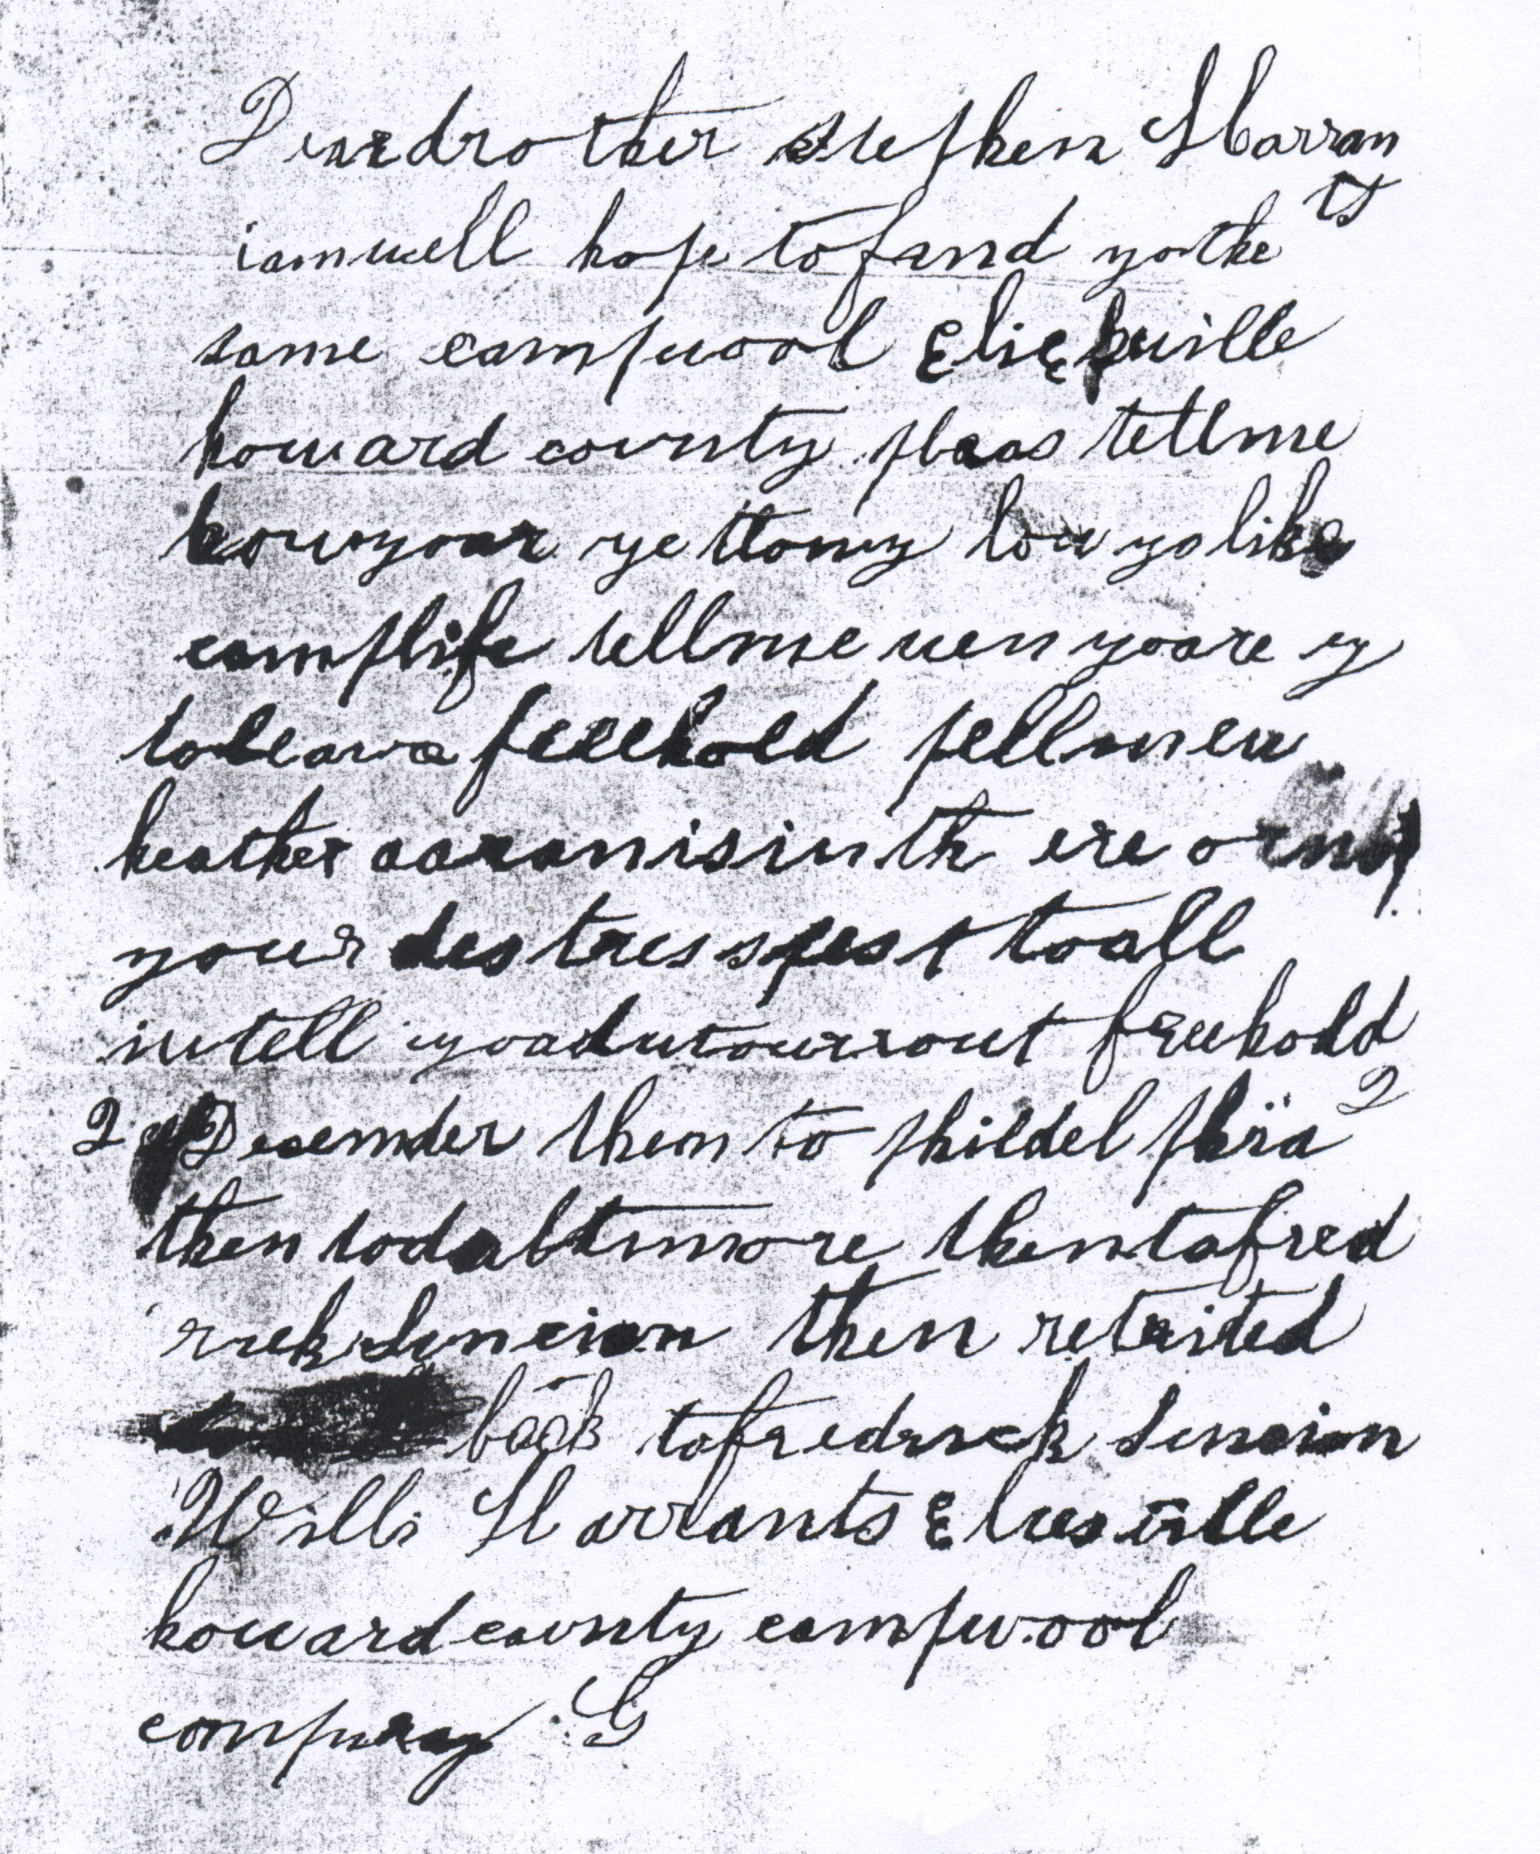 Deardrother stephen Harran
ts
iamwell hope tofind yothe
same campwool
howard county pleas tellme
howyoar ye ttomy how yo like
camplife tellme wen yoare
toleava freehold tellmew
heather aaranisinth ere ornot
your destresspest toall
iwtell
freehold
2 Desemder then to phildelphia 2
then todaltimore thentafred
rick then retrited
back tofredrick
Willi Harrants
howardcounty campwool
company G